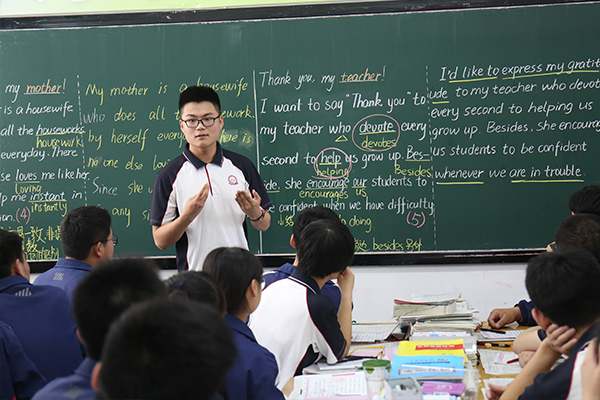 my mother!
is a housewife
all the housework
housework
everyday. There
loves me like her
loving
help me instant in
(4) instantly
My mother is a housewife
who does all housework
by herself every here is
no one else lov
Since she
any s
Thank you, my teacher!
I want to say "Thank you" to
my teacher who devote every
devotes
second to help us grow up. Bes-
helping Besides
ide, she encourage our students to
encourages us
be confident when we have difficulty
in doing (5)
besides besby
I'd like to express my gratit
ude to my teacher who devot
every second to helping us
grow up. Besides, she encourag
us students to be confident
whenever we are in trouble.